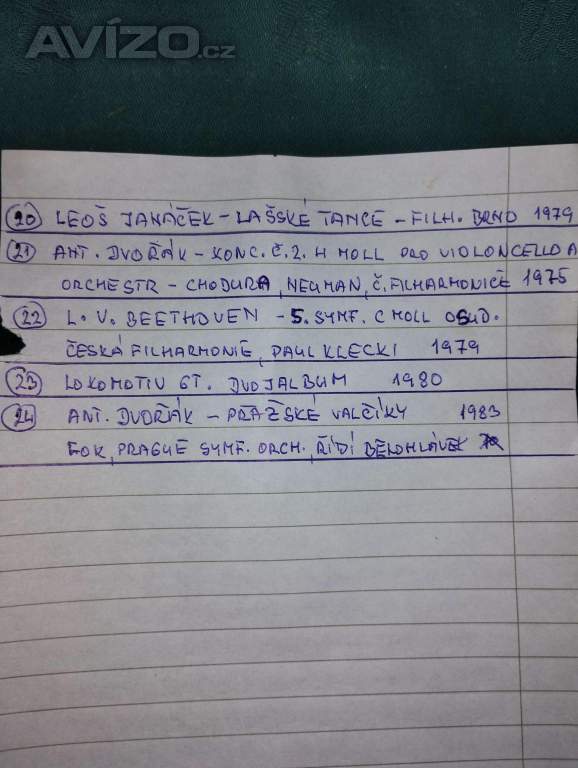 AVÍZO.cz
20 LEOŠ JANÁČEK - LAŠSKÉ TANCE - FILH. BRNO 1979
21 ANT. DVOŘÁK - KONC. Č. 2. H MOLL PRO VIOLONCELLO A
ORCHESTR - CHODURA, NEUMAN, Č. FILHARMONIE 1975
22 L. V. BEETHOVEN - 5. SYMF. C MOLL OSUD.
ČESKÁ FILHARMONIE, PAUL KLECKI 1979
23 LOKOMOTIV GT. DVOJALBUM 1980
24 ANT. DVOŘÁK - PRAŽSKÉ VALČÍKY 1983
FOK, PRAGUE SYMF. ORCH., ŘÍDÍ BĚLOHLÁVEK